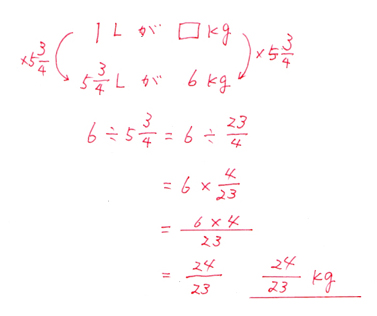 1 L が □ kg
×5 3/4 ×5 3/4
5 3/4 L が 6 kg
6 ÷ 5 3/4 = 6 ÷ 23/4
= 6 × 4/23
= 6×4/23
= 24/23 24/23 kg